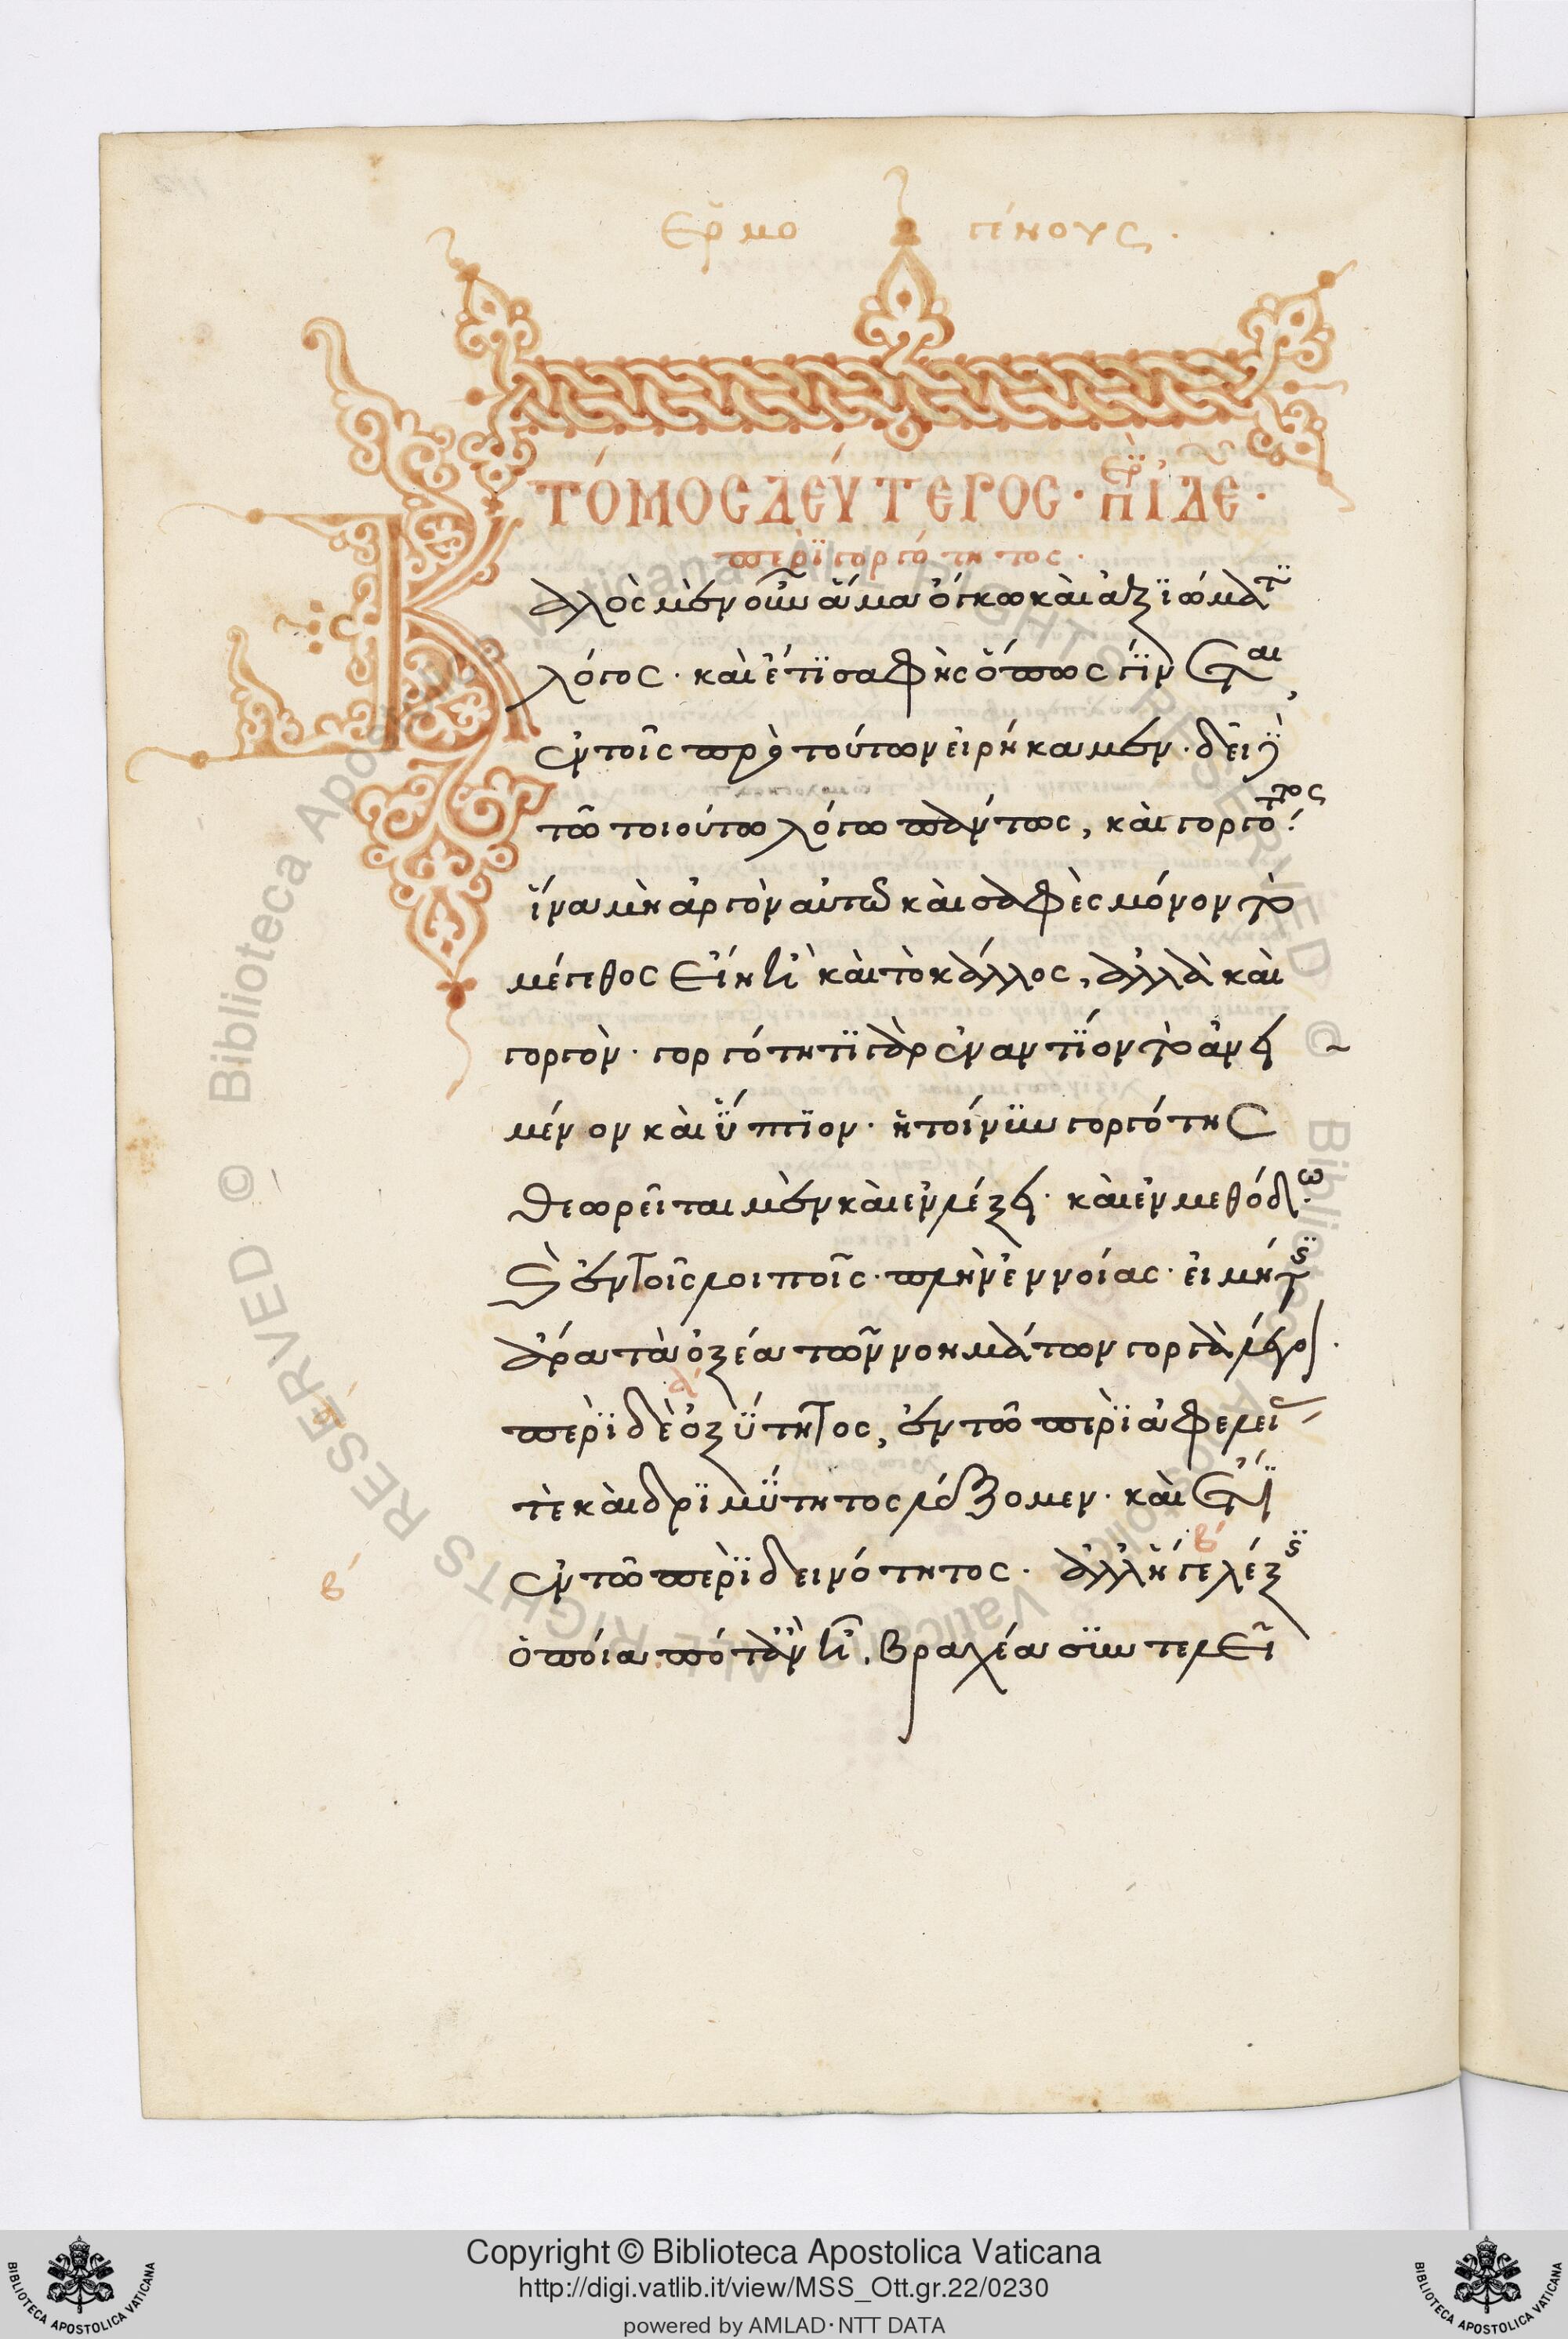 Ἑρμο γένους.
ΤΌΜΟΣ ΔΕΎΤΕΡΟΣ· ΠΕΡῚ ἸΔΕ·
περὶ γοργότητος·
Καλὸς μὲν οὖν ἅμα ὄγκω καὶ ἀξιώματι
λόγος· καὶ ἔτι σαφὴς ὅπως γίνεται,
ἐν τοῖς πρὸ τούτων εἰρήκαμεν· δεῖ δὲ
τῶ τοιούτω λόγω πάντως, καὶ γοργότητος·
ἵνα μὴ ἀργὸν αὐτῶ καὶ σαφὲς μόνον τὸ
μέγεθος εἴη καὶ τὸ κάλλος, ἀλλὰ καὶ
γοργὸν· γοργότητι γὰρ ἐναντίον τὸ ἀνει
μένον καὶ ὕπτιον· ἡ τοίνυν γοργότης
θεωρεῖται μὲν καὶ ἐν λέξει· καὶ ἐν μεθόδω·
καὶ ἐν τοῖς λοιποῖς· πλὴν ἐννοίας· εἰ μή τις
ἄρα τὰ ὀξέα τῶν νοημάτων γοργὰ λέγοι·
α΄
περὶ δὲ ὀξύτητος, ἐν τῶ περὶ ἀφελείας
α΄
τὲ καὶ δριμύτητος λέξομεν· καὶ ἔτι
ἐν τῶ περὶ δεινότητος· ἀλλ' ἥ γε λέξις
β΄
β΄
ὁποία ποτ' ἂν, βραχέα συντελεῖ
Copyright © Biblioteca Apostolica Vaticana
http://digi.vatlib.it/view/MSS_Ott.gr.22/0230
powered by AMLAD·NTT DATA
BIBLIOTECA APOSTOLICA VATICANA
BIBLIOTECA APOSTOLICA VATICANA
© Biblioteca Apostolica Vaticana ALL RIGHTS RESERVED © Biblioteca Apostolica Vaticana ALL RIGHTS RESERVED